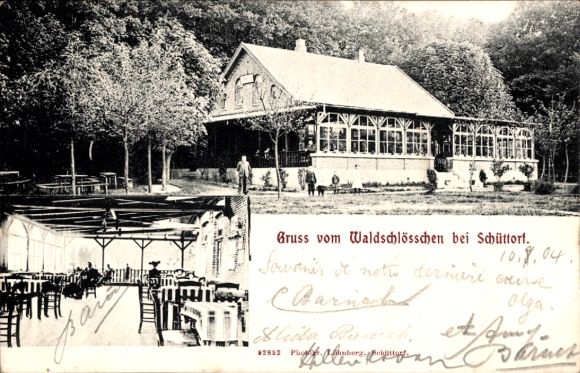 Gruss vom Waldschlösschen bei Schüttorf.
10.8.04
Souvenir de notre dernière course
Olga.
C Barnich
Alida
et Anny
92852 Photogr. Löhnberg, Schüttorf.